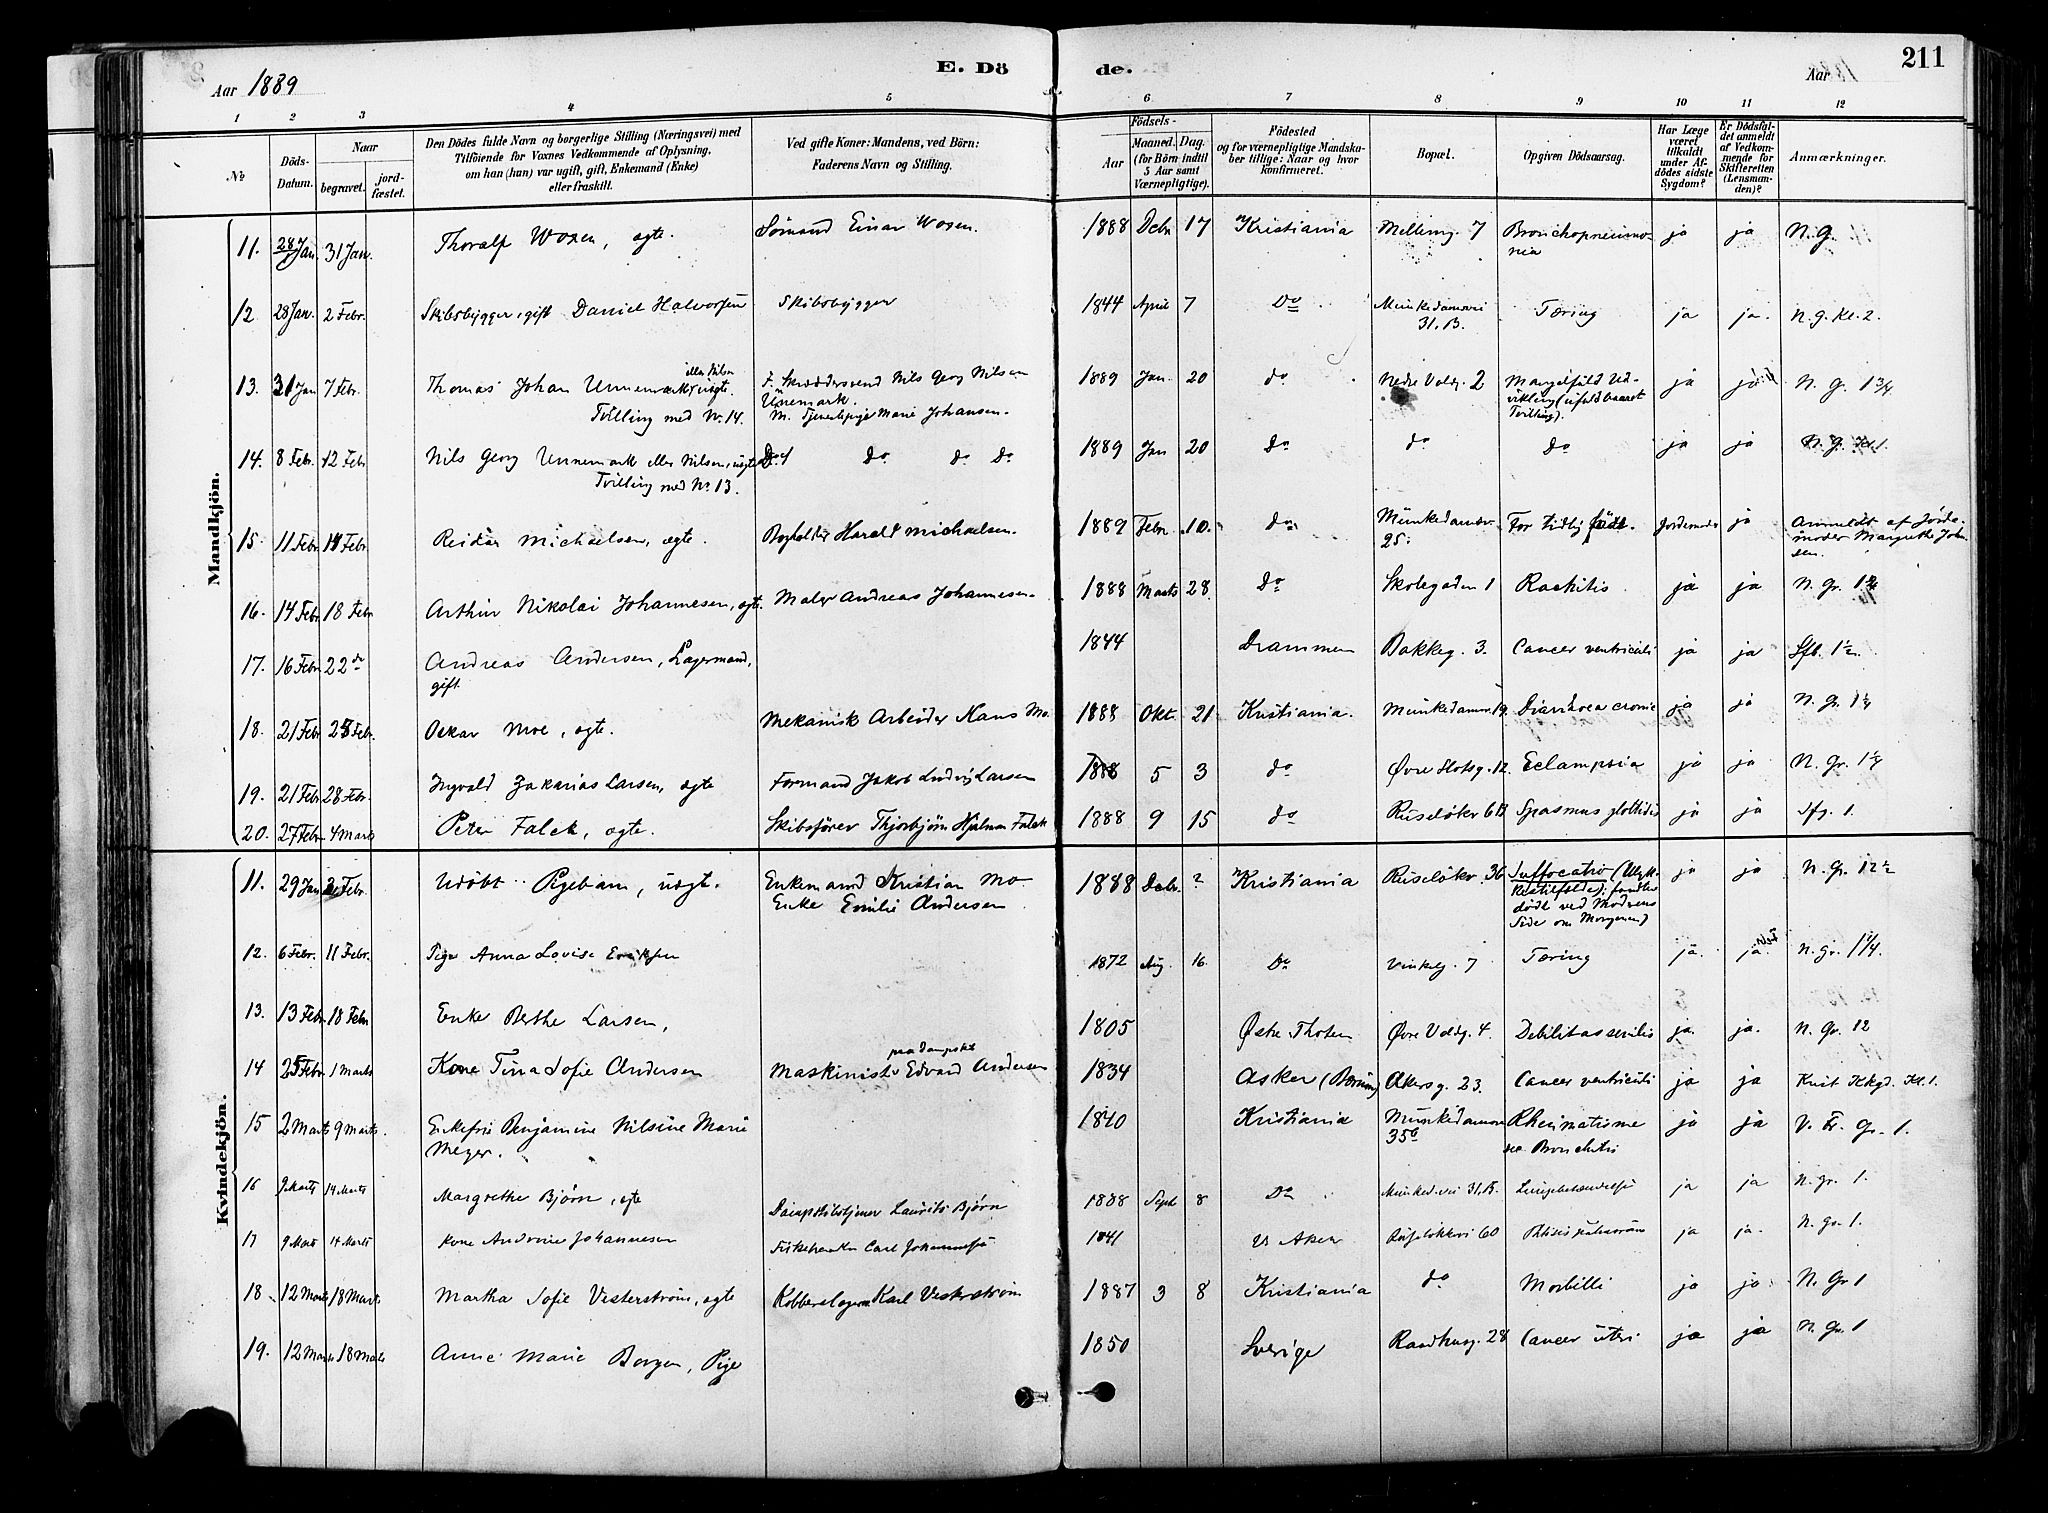 211
Aar 1889
E. Dö
de.
Aar 188
1 2 3 4 5 6 7 8 9 10 11 12
№
Döds-Datum.
Naar
begravet.
jord-fæstet.
Den Dödes fulde Navn og borgerlige Stilling (Næringsvei) med
Tilföiende for Voxnes Vedkommende af Oplysning,
om han (hun) var ugift, gift, Enkemand (Enke)
eller fraskilt.
Ved gifte Koner: Mandens, ved Börn:
Faderens Navn og Stilling.
Födsels-
Aar
Maaned. Dag.
(for Börn indtil
5 Aar samt
Værnepligtige).
Födested
og for værnepligtige Mandska-
ber tillige: Naar og hvor
konfirmeret.
Bopæl.
Opgiven Dödsaarsag.
Har Læge
været
tilkaldt
under Af-
dödes sidste
Sygdom?
Er Dödsfal-
det anmeldt
af Vedkom-
mende for
Skifteretten
(Lensman-
den)?
Anmærkninger.
Mandkjön.
11. 28 Jan. 31 Jan. Thoralf Woxen, ægte. Einar Woxen. 1888 Decbr 17 Kristiania Melling. 7 Bronchopneumo-
nia ja ja N. G.
12 28 Jan. 2 Febr. Skibsbygger, gift Daniel Halvorsen Skibsbygger 1844 April 7 Do Munkedamsvei
31. B. Tæring ja ja. N. G. Kl. 2.
13. 31 Jan 7 Febr. Thomas Johan Unnemark, eller Nilsen uægte.
Tvilling med No. 14. F. Skræddersvend Nils Georg Nilsen
Unemark.
M. Tjenestepige Marie Johansen. 1889 Jan. 20 do Nedre Voldg. 2 Mangelfuld Ud-
vikling (ufuldbaaret
Tvilling). ja ja N. G. 1 3/4
14. 8 Febr. 12 Febr Nils Georg Unnemark eller Nilsen, uægte
Tvilling med No. 13. Do do do Do 1889 Jan 20 Do do Do ja ja N. G. Kl 1.
15. 11 Febr. 14 Febr Reidar Michaelsen, ægte. Bogholder Harald Michaelsen. 1889 Febr. 10. do Munkedamsv.
25. For tidlig født. Jordemoder ja Anmeldt af Jorde-
moder Margrethe John-
sen.
16. 14 Febr. 18 Febr Arthur Nikolai Johannesen, ægte. Maler Andreas Johannesen. 1888 Marts 28. Do Skolegaden 1 Rachitis. ja ja N. Gr.
17. 16 Febr. 22 do Andreas Andersen, Lagermand,
gift. 1844 Drammen Bakkeg. 3. Cancer ventriculi ja ja
18. 21 Febr. 25 Febr. Oskar Moe, ægte. Mekanisk Arbeider Hans Mo. 1888 Okt. 21 Kristiania. Munkedamsv. 19. Diarrhoea cronic ja ja N. Gr.
19. 21 Febr. 28 Febr. Ingvald Zakarias Larsen, ægte Formand Jakob Ludvig Larsen 1888 5 3 do Øvre Slotsg. 12. Eclampsia ja ja N. Gr.
20. 27 Febr. 4 Marts Peter Falck, ægte. Skibsfører Thjorbjørn Hjalmar Falck 1888 9 15 do Ruseløkv 6B Spasmus glottidis ja ja
Kvindekjön.
11. 29 Jan Febr. Udøbt Pigebarn, uægt. Enkemand Kristian Mo.
Enke Emilie Andersen 1888 Decbr. ? Kristiania Ruseløkv. 36 Suffocatio (Ulyk-
kestilfælde); fundet
dødt ved Modrens
Side om Morgenen) ja ja N. Gr.
12. 6 Febr. 11 Febr. Pige Anna Lovise Eriksen 1872 Aug. 16. Do Vinkelg. 7 Tæring ja. ja. N. Gr. 1 1/4.
13. 13 Febr 18 Febr Enke Berthe Larsen, 1805 Østre Thoten Øvre Voldg. 4. Debilitas senilis ja. ja. N. Gr. 12
14 25 Febr. 1 Marts Kone Tina Sofie Andersen Maskinist paa Dampskib Edvard Andersen 1834 Asker (Bærum) Akersg. 23. Cancer ventriculi ja ja Krist Kkgd. Kl. 1.
15 2 Marts 9 Marts. Enkefru Benjamine Nilsine Marie
Meyer. 1840 Kristiania Munkedamsv
35 b Rheumatisme
Bronchitis ja ja V. Fr. Gr. 1.
16 9 Marts 14 Marts Margrethe Bjørn, ægte Dampskibstjener Laurits Bjørn 1888 Sept 8 Do Munked.vei 31,B. Lungebetændelse ja ja N. gr. 1.
17 9 Marts 14 Marts Kone Andrine Johannesen Carl Johannesen 1841 V. Aker Ruseløkvei 60 Phtisis pulmonum ja ja. N. gr. 1.
18 12 Marts 18 Marts Martha Sofie Vesterstrøm, ægte Kobberslager Karl Vesterstrøm 1887 3 8 Kristiania do Morbilli ja ja N. Gr 1
19. 12 Marts 18 Marts Anne Marie Borgen, Pige 1850 Sverige Raadhusg. 28 Cancer uteri ja ja N. Gr. 1